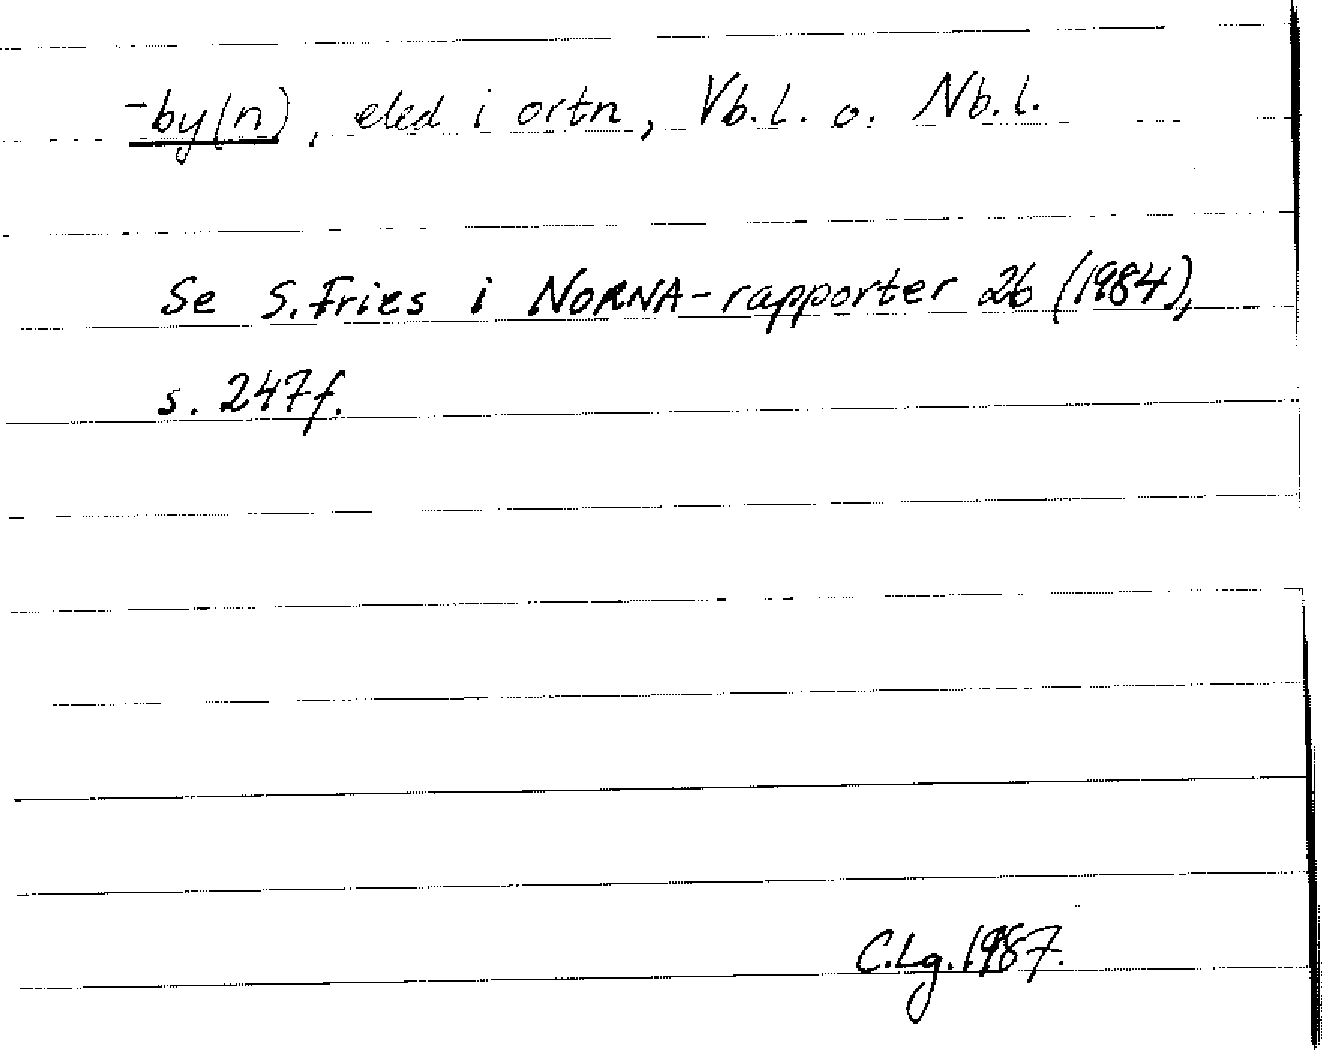 -by(n), eled i ortn, Vb.l. o. Nb.l.
Se S. Fries i NORNA-rapporter 26 (1984),
s. 247f.
C.Lg. 1987.